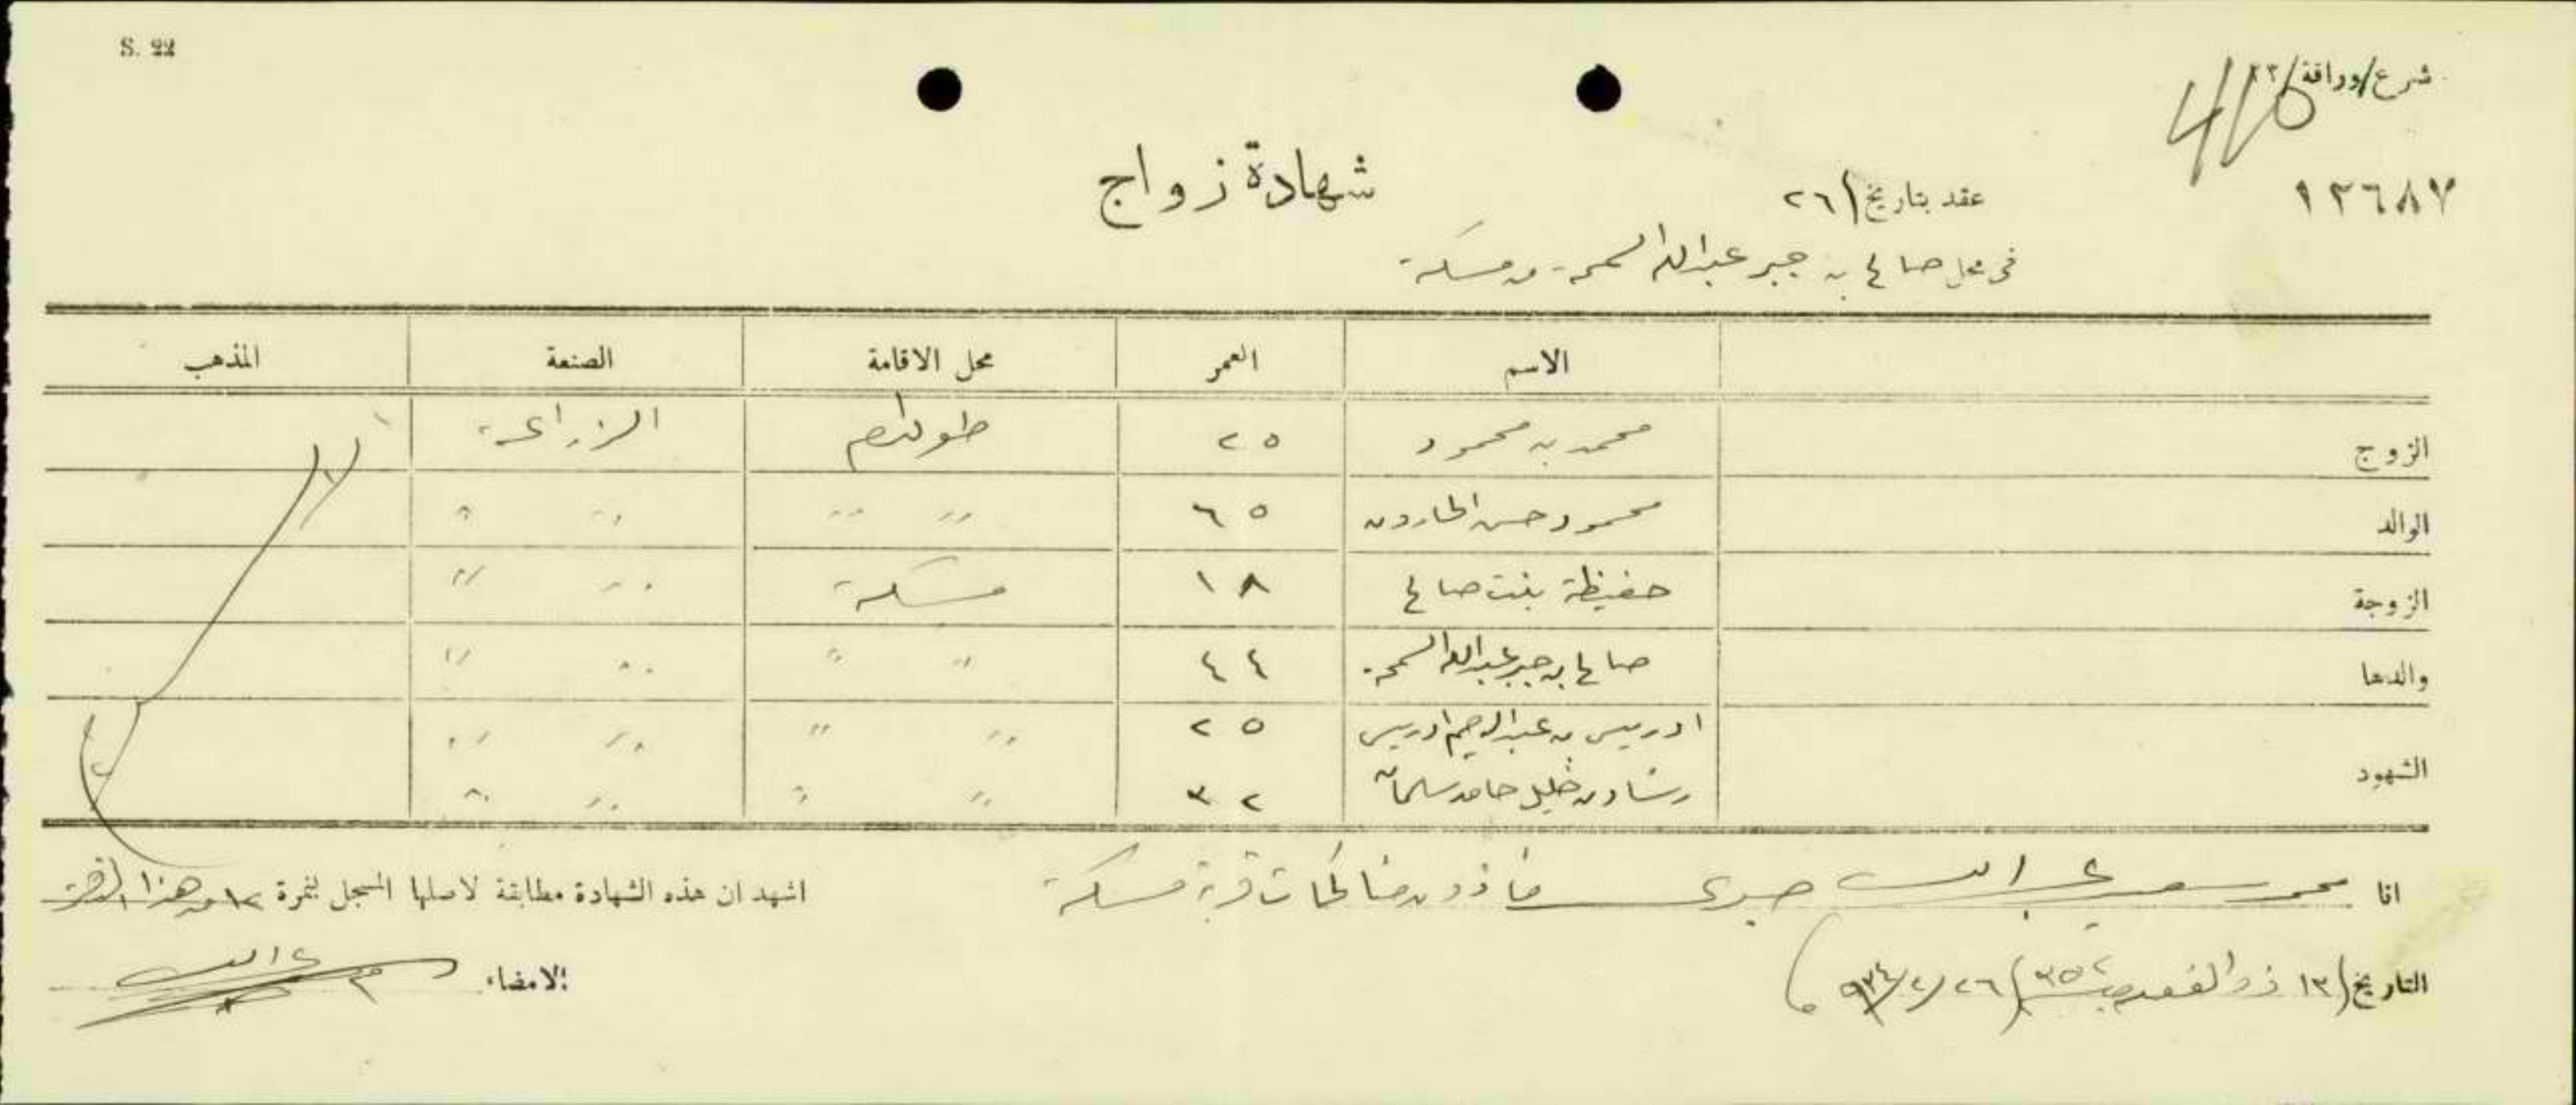 S. 22
شرع/وراقة/٢٢
١٢٦٨٧
شهادة زواج
عقد بتاريخ ٢٦
في محل صالح بن جبر عبدالله من مسكة
الاسم العمر محل الاقامة الصنعة المذهب
الزوج محمد بن محمود ٢٥ طولكرم الزراعة
الوالد محمود حسن الحارون ٦٥ 〃 〃 〃 〃
الزوجة حفيظة بنت صالح ١٨ مسكة 〃 〃
والدها صالح بن جبر عبدالله ٤٤ 〃 〃 〃 〃
الشهود ادريس بن عبدالرحيم ادريس ٢٥ 〃 〃 〃 〃
رشاد بن خليل حامد سلمان ٣٢ 〃 〃 〃 〃
انا محمد سعيد صبري مأذون مناكحات قرية مسكة اشهد ان هذه الشهادة مطابقة لاصلها المسجل بنمرة من هذا الدفتر
التاريخ ١٣ ذو القعدة سنة ٣٥٢ ٢٦/٢/٩٣٤ الامضاء